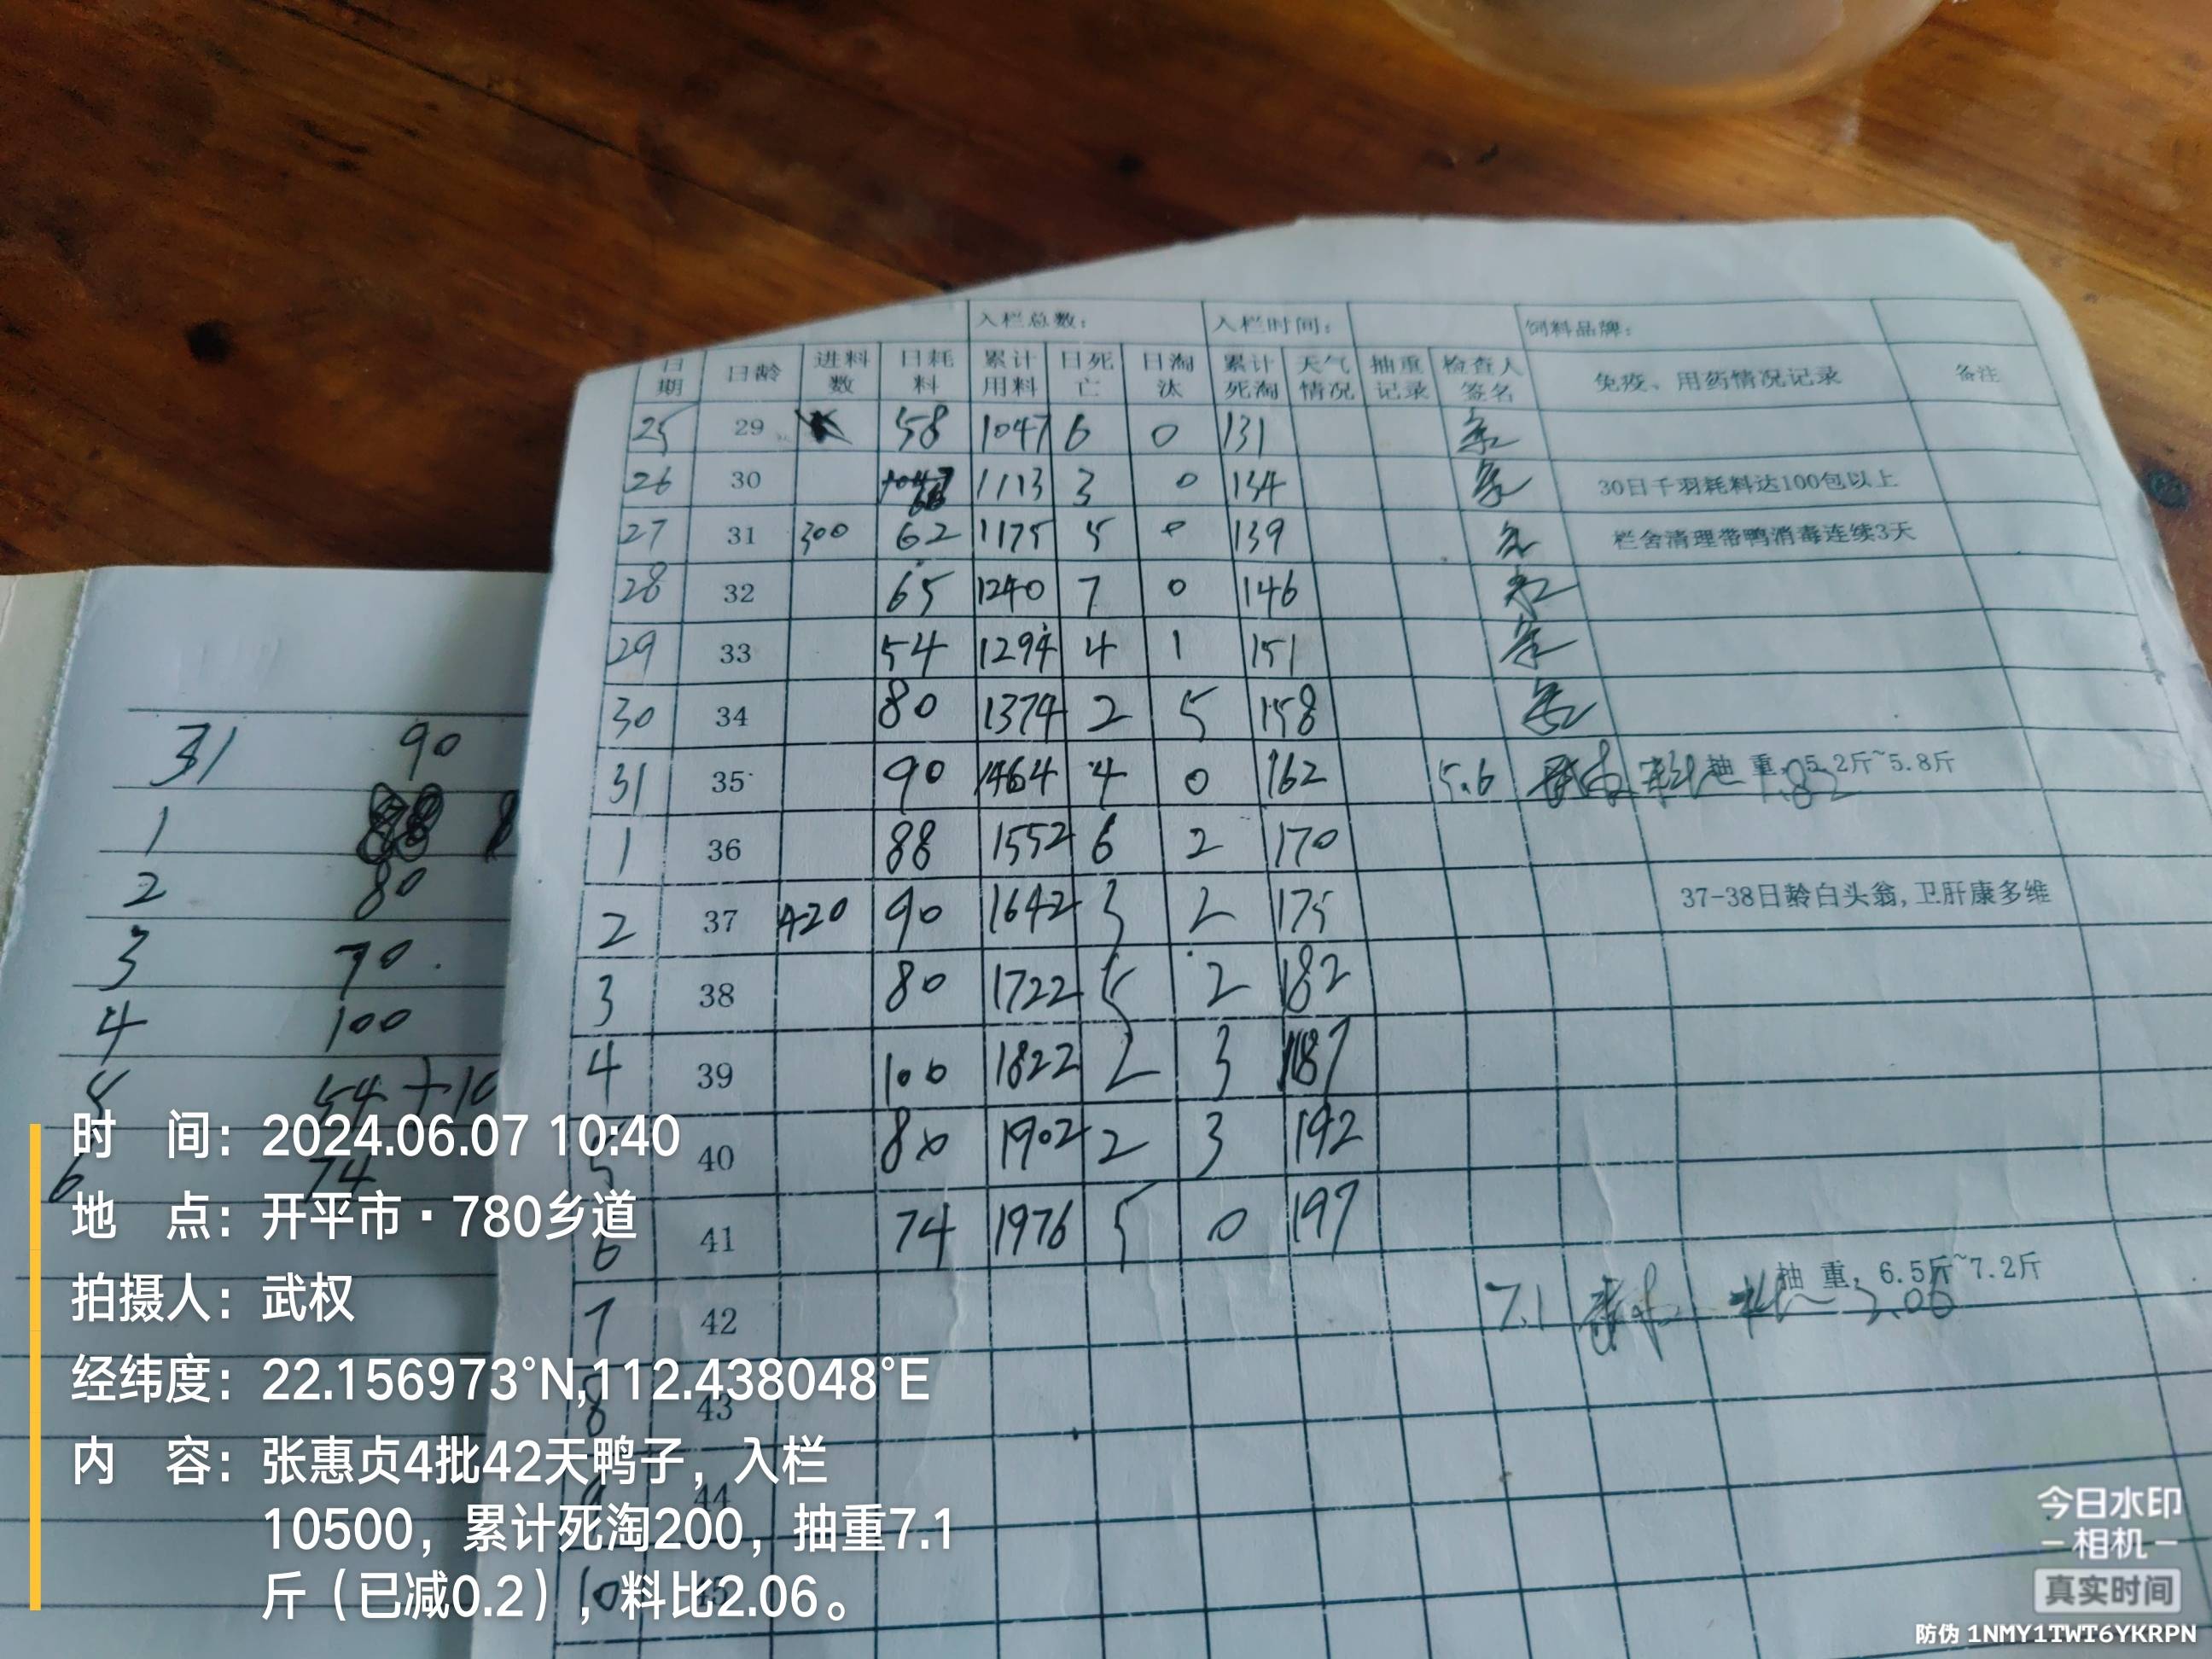 入栏总数: 入栏时间: 饲料品牌:
日期 日龄 进料数 日耗料 累计用料 日死亡 日淘汰 累计死淘 天气情况 抽重记录 检查人签名 免疫、用药情况记录 备注
25 29 58 1047 6 0 131
26 30 66 1113 3 0 134 30日千羽耗料达100包以上
27 31 300 62 1175 5 0 139 栏舍清理带鸭消毒连续3天
28 32 65 1240 7 0 146
29 33 54 1294 4 1 151
30 34 80 1374 2 5 158
31 35 90 1464 4 0 162 5.6 抽重:5.2斤~5.8斤 1.82
1 36 88 1552 6 2 170
2 37 420 90 1642 3 2 175 37-38日龄白头翁,卫肝康多维
3 38 80 1722 5 2 182
4 39 100 1822 2 3 187
5 40 80 1902 2 3 192
6 41 74 1976 5 0 197
7 42 7.1 抽重:6.5斤~7.2斤 2.06
8 43
9 44
10 45
31 90
1 88
2 80
3 70
4 100
5 54+10
6 74
时 间：2024.06.07 10:40
地 点：开平市·780乡道
拍摄人：武权
经纬度：22.156973°N,112.438048°E
内 容：张惠贞4批42天鸭子，入栏
10500，累计死淘200，抽重7.1
斤（已减0.2），料比2.06。
今日水印
-相机-
真实时间
防伪 1NMY1TWT6YKRPN